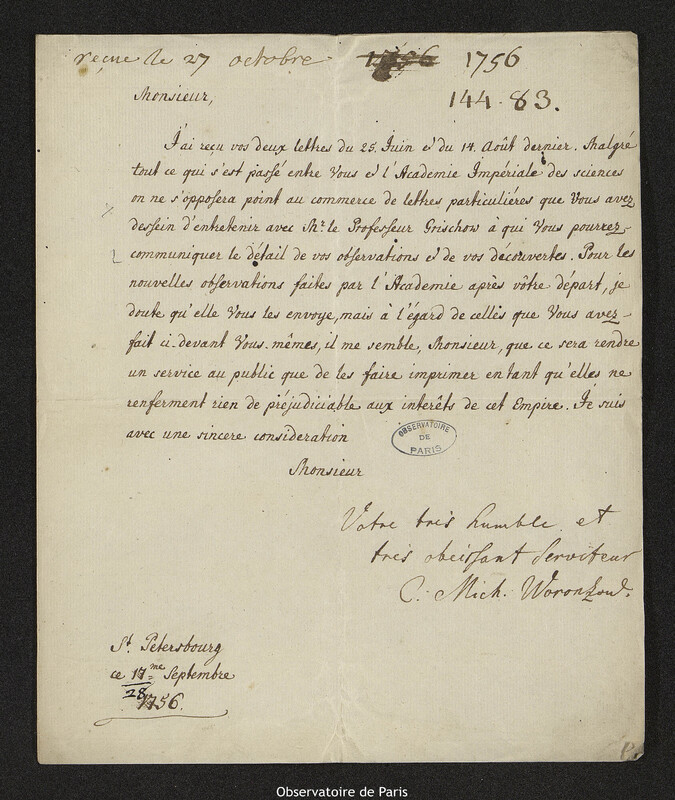 reçue le 27 octobre 1756 1756
144.83.
Monsieur,
J'ai reçu vos deux lettres du 25. Juin et du 14. Août dernier. Malgré
tout ce qui s'est passé entre Vous et l'Academie Impériale des sciences
on ne s'opposera point au commerce de lettres particuliéres que Vous avez
dessein d'entretenir avec Mr. le Professeur Grischow à qui Vous pourrez
communiquer le détail de vos observations et de vos décorvertes. Pour les
nouvelles observations faites par l'Academie après vôtre départ, je
doute qu'elle Vous les envoye, mais à l'égard de celles que Vous avez
fait ci-devant Vous-mêmes, il me semble, Monsieur, que ce sera rendre
un service au public que de les faire imprimer entant qu'elles ne
renferment rien de préjudiciable aux interêts de cet Empire. Je suis
avec une sincere consideration
OBSERVATOIRE
DE
PARIS
Monsieur
Votre tres humble et
tres obeissant Serviteur
C. Mich. Woronzow.
St. Pétersbourg
ce 17me Septembre
28
1756.
Observatoire de Paris